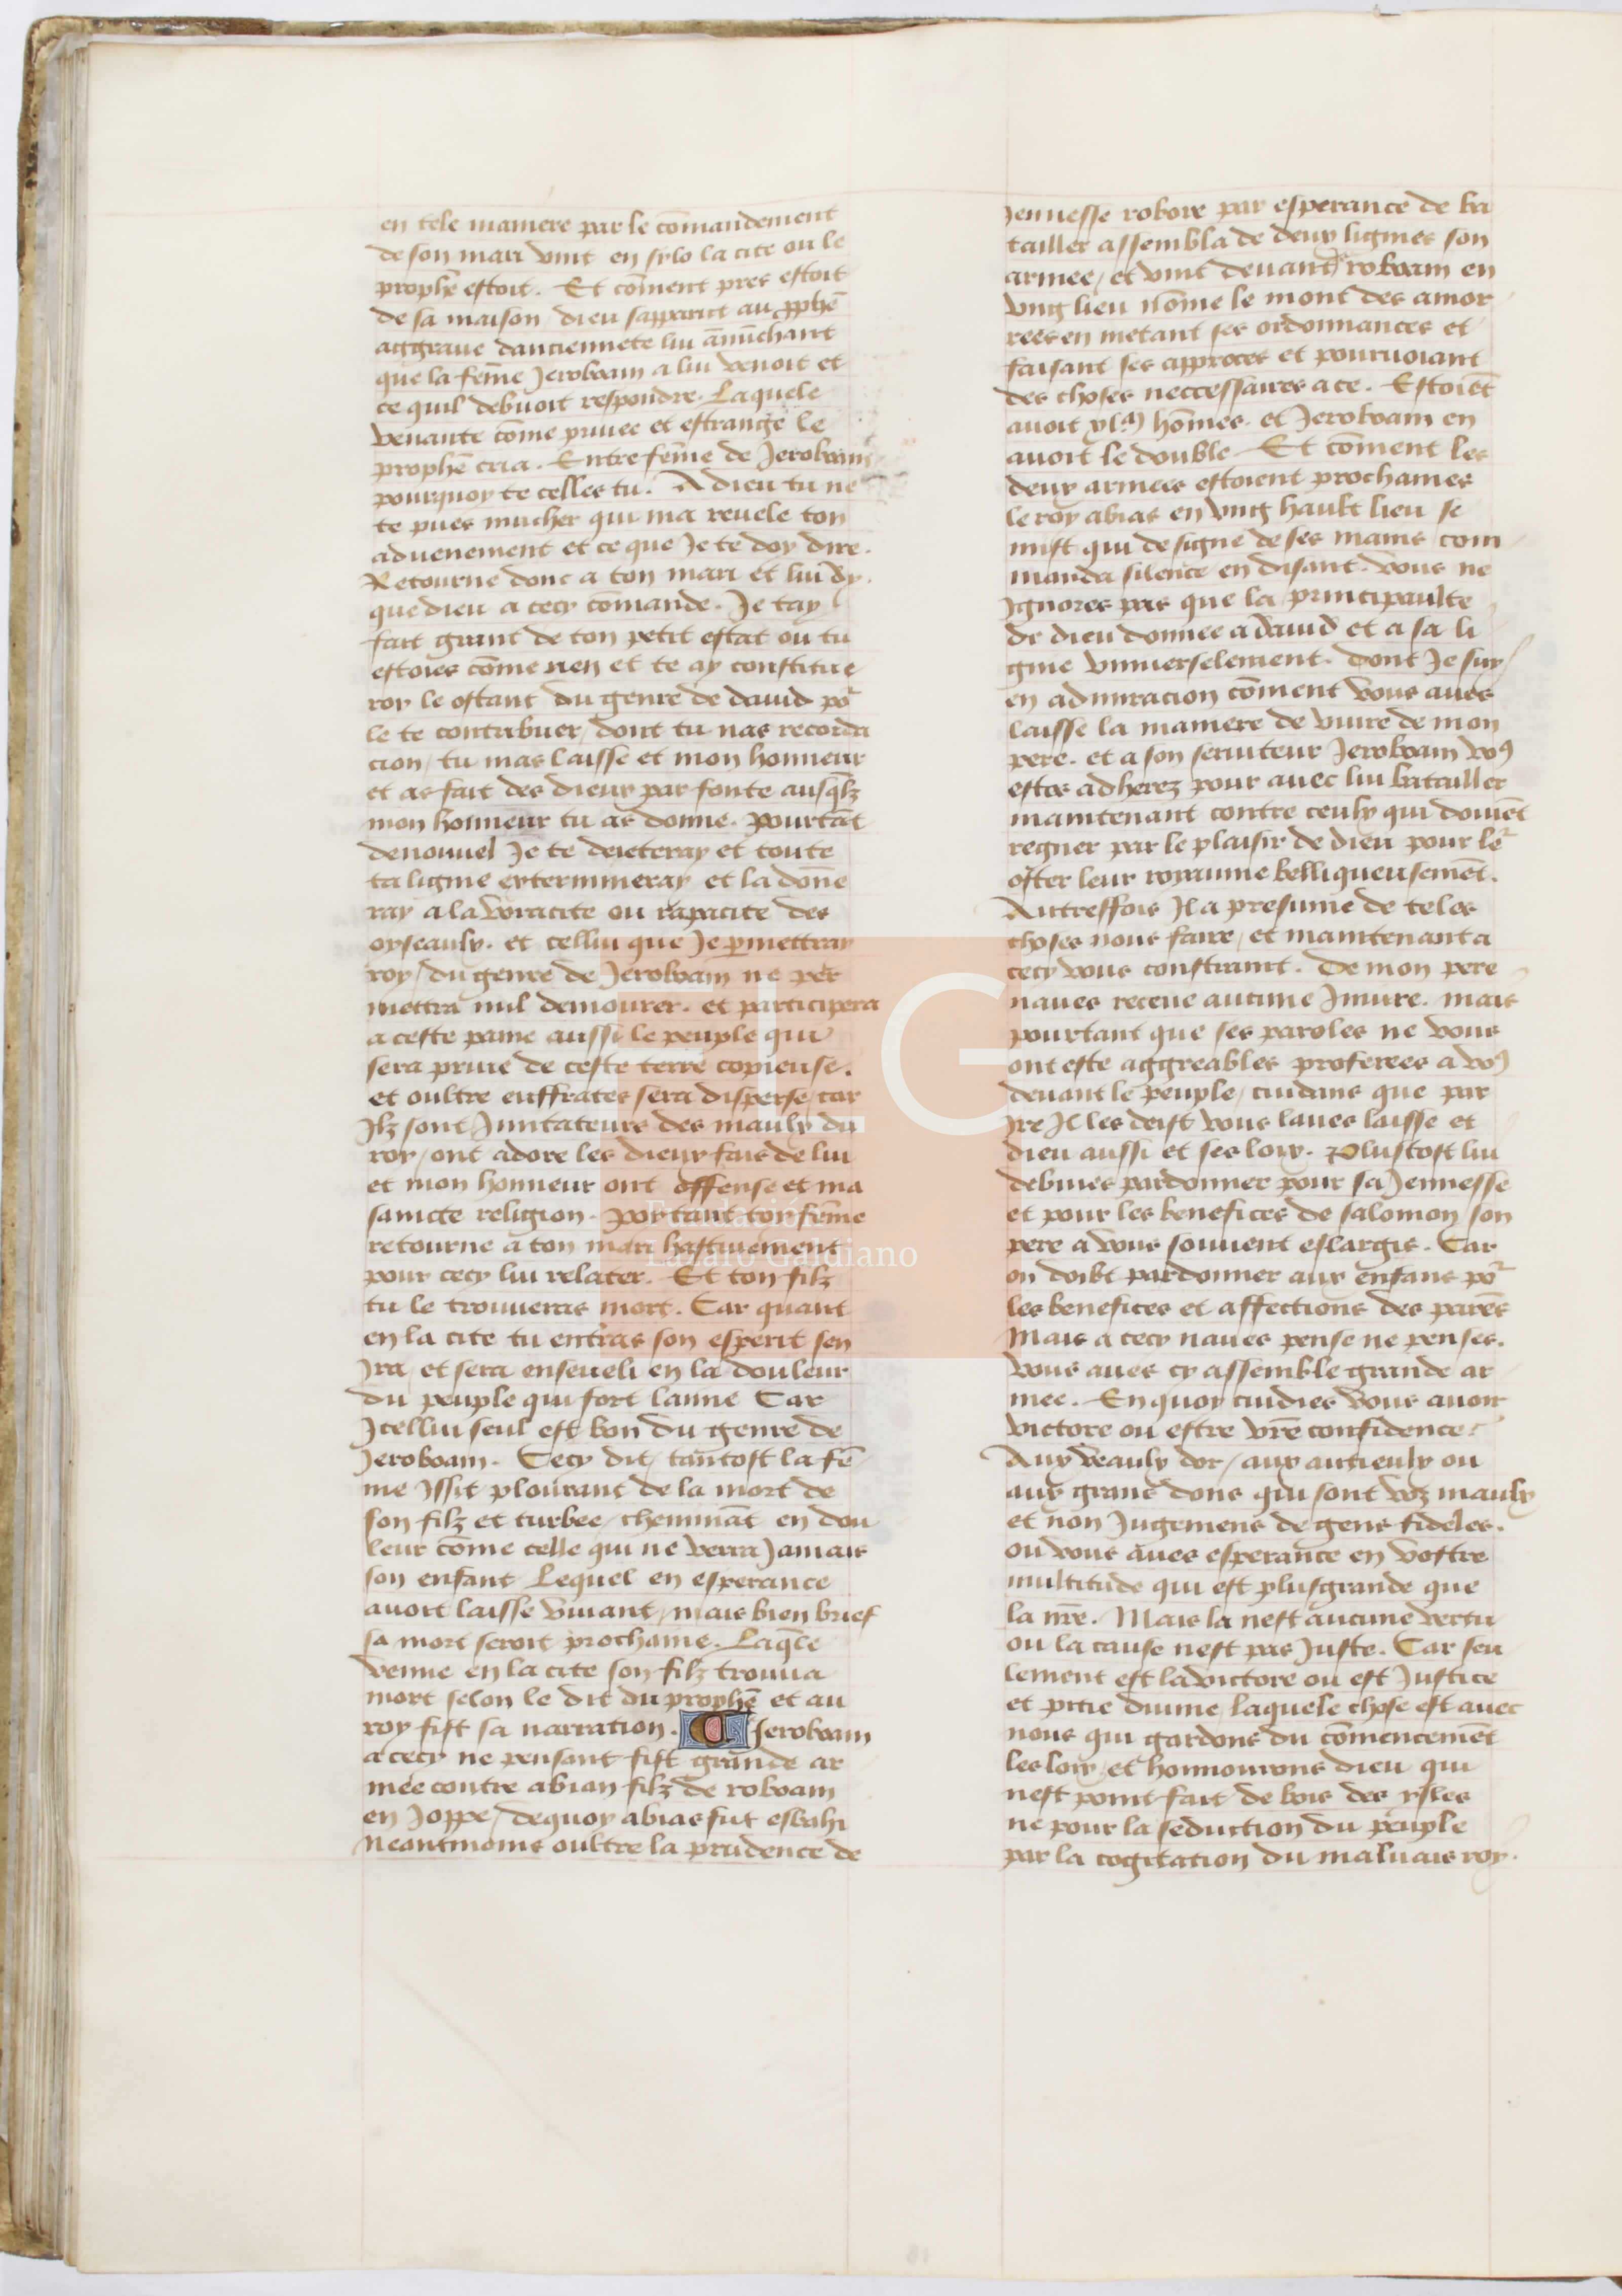 en tele maniere par le cōmandement
de son mari vint en sylo la cite ou le
prophē estoit. Et cōment pres estoit
de sa maison / dieu sapparut au pphē
aggraue danciennete lui ānūchant
que la fēme Jeroboam a lui venoit et
ce quil debuoit respondre. Laquele
venante cōme priuee et estrange le
prophē cria. Entre fēme de Jeroboam
pourquoy te celles tu. A dieu tu ne
te pues mucher qui ma reuele ton
aduenement et ce que Je te doy dire.
Retourne donc a ton mari et lui dy.
que dieu a cecy cōmande. Je tay
fait grant de ton petit estat ou tu
estoies cōme rien et te ay constitue
roy le ostant du genre de dauid po
le te contribuer / dont tu nas recorda
cion / tu mas laisse et mon honneur
et as fait des dieux par fonte ausqlz
mon honneur tu as donne. Pourtāt
denouuel Je te deieteray et toute
ta ligme extermineray et la dōne
ray a la voracite ou rapacite des
oyseaulx. et cellui que Je pmettray
roy / du genre de Jeroboam ne per
mettra nul demourer. et participera
a ceste paine aussi le peuple qui
sera priue de ceste terre copieuse.
et oultre euffrates sera disperse / car
Ilz sont Jmitateurs des maulx du
roy / ont adore les dieux fais de lui
et mon honneur ont offense et ma
saincte religion. Portant toy fēme
retourne a ton mari hastiuement
pour cecy lui relater. Et ton filz
tu le trouueras mort. Car quant
en la cite tu entras son esperit sen
Jra / et sera enseueli en la douleur
du peuple qui fort lanne Car
Jcellui seul est bon du genre de
Jeroboam. Cecy dit / tantost la fē
me Jssit plourant de la mort de
son filz et turbee / chemināt en dou
leur cōme celle qui ne verra Jamais
son enfant Lequel en esperance
auoit laisse viuant / mais bien brief
sa mort seroit prochaine. Laqle
venue en la cite son filz trouua
mort selon le dit du prophē et au
roy fist sa narration. Jeroboam
a cecy ne pensant fist grande ar
mee contre abian filz de roboam
en Joppe / dequoy abias fut esbahi
Neantmoins oultre la prudence de
Jennesse robore par esperance de ba
tailler assembla de deux ligmes son
armee / et vint deuant roboam en
vng lieu nōme le mont des amor
rees en metant ses ordonnances et
faisant ses approces et pouruoiant
des choses neccessaires a ce. Estoiēt
auoit xlM hōmes. et Jeroboam en
auoit le double Et cōment les
deux armees estoient prochaines
le roy abias en vng hault lieu se
mist qui de signe de ses mains com
manda silence en disant. Vous ne
Jgnores pas que la principaulte
de dieu donnee a dauid et a sa li
gme vniuerselement. dont Je suy
en admiracion cōment vous aues
laisse la maniere de viure de mon
pere. et a son seruiteur Jeroboam vo9
estes adherez pour auec lui batailler
maintenant contre ceulx qui doiuēt
regner par le plaisir de dieu pour le
oster leur royaume belliqueusemēt.
Autreffois Il a presume de teles
choses nous faire / et maintenant a
cecy vous constraint. De mon pere
naues receue aucune Jniure. mais
pourtant que ses paroles ne vous
ont este aggreables proferees a vo9
deuant le peuple / cuidans que par
Jre Il les deist vous laues laisse et
dieu aussi et ses loix. Plustost lui
debuies pardonner pour sa Jennesse
et pour les benefices de salomon son
pere a vous souuent eslargis. Car
on doibt pardonner aux enfans po
les benefices et affections des parēs
Mais a cecy naues pense ne penses.
Vous aues cy assemble grande ar
mee. En quoy cuidies vous auoir
victore ou estre vrē confidence.
Aux veaulx dor / aux autieulx ou
aux grans dons qui sont voz maulx
et non Jugemens de gens fideles.
ou vous aues esperance en vostre
multitude qui est plusgrande que
la nrē. Mais la nest aucune vertu
ou la cause nest pas Juste. Car seu
lement est la victore ou est Justice
et pitie diuine laquele chose est auec
nous qui gardons du cōmencemēt
les loix et honnourons dieu qui
nest point fait de bois des ysles
ne pour la seduction du peuple
par la cogitation du maluais roy.
Fundación
Lázaro Galdiano